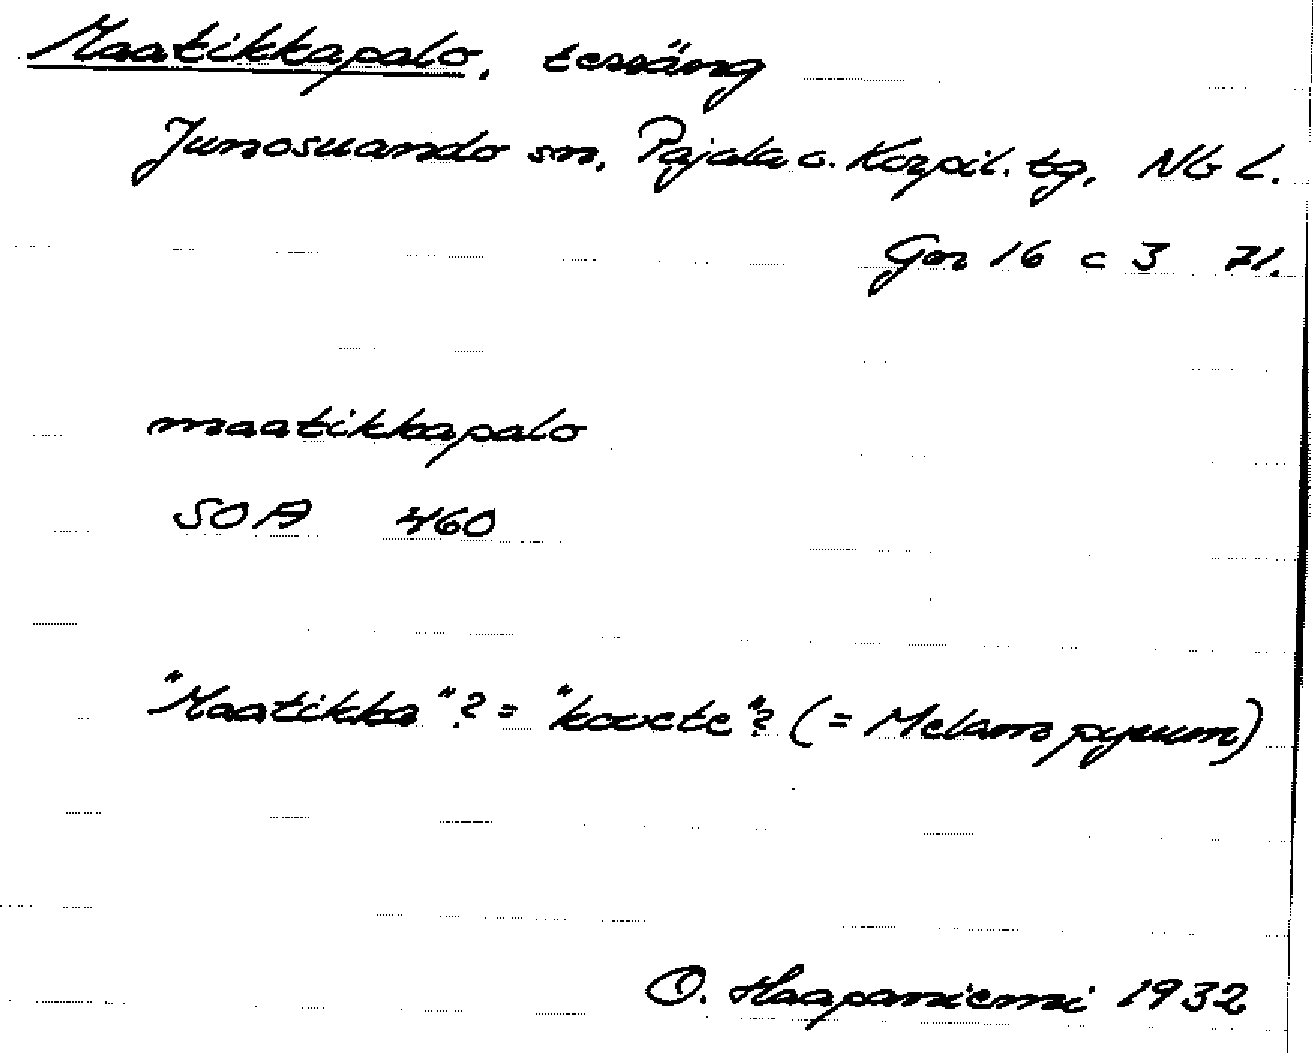 Maatikkapalo, terräng
Junosuando sn, Pajala o. Korpil. tg, NB L.
Gen 16 c 3 71.
maatikkapalo
SOA 460
"Maatikka"? = "kovete"? (= Melampyrum)
O. Haapaniemi 1932